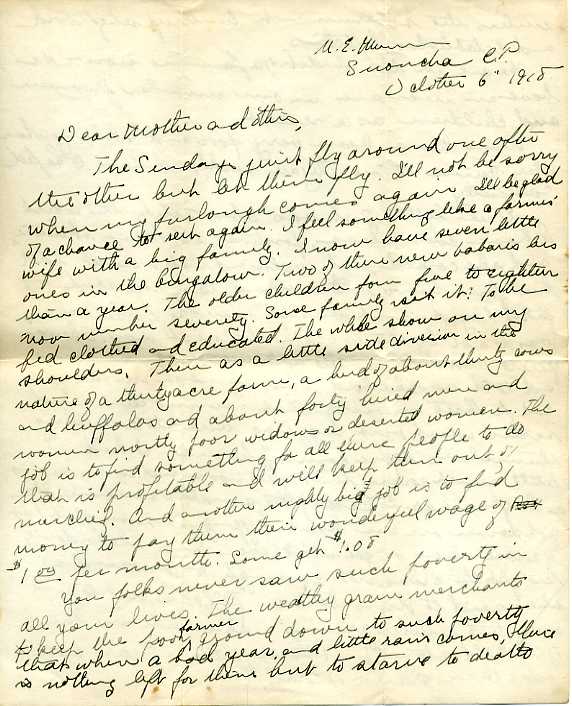 M. E.
C.P.
October 6" 1918
Dear Mother and others,
The Sundays just fly around one after
the other but let them fly. I'll not be sorry
when my furlough comes again. I'll be glad
of a chance to rest again. I feel something like a farmer's
wife with a big family. I now have seven little
ones in the bungalow. Two of them new babies less
than a year. The older children from five to eighteen
now number seventy. Some family isn't it? To be
fed clothed and educated. The whole show on my
shoulders. Then as a little side diversion in the
nature of a thirty acre farm, a herd of about thirty cows
and buffalos and about forty hired men and
women mostly poor widows or deserted women. The
job is to find something for all these people to do
that is profitable and will keep them out of
mischief. And another mighty big job is to find
money to pay them their wonderful wage of
$1.00 per month. Some get $1.08
You folks never saw such poverty in
all your lives. The wealthy grain merchants
to keep the poor farmer ground down to such poverty
that when a bad year, and little rain comes, there
is nothing left for them but to starve to death